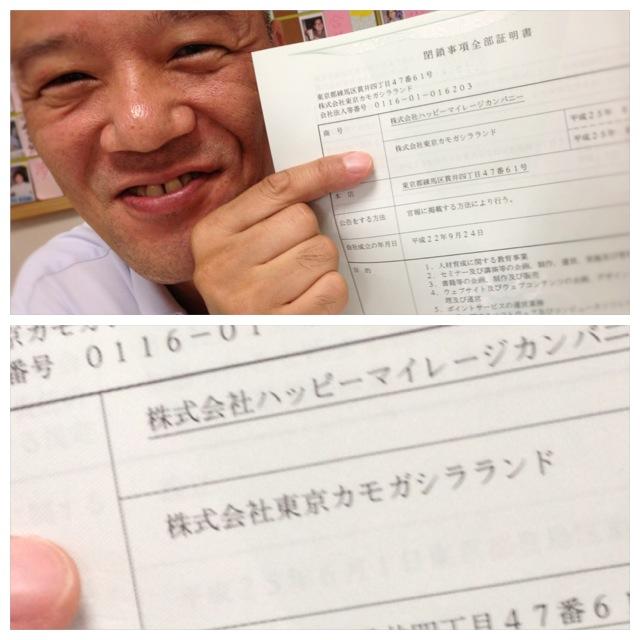 閉鎖事項全部証明書
東京都練馬区貫井四丁目47番61号
株式会社東京カモガシラランド
会社法人等番号 0116-01-016203
商 号
株式会社ハッピーマイレージカンパニー
株式会社東京カモガシラランド
平成25年
平成25年
本 店
東京都練馬区貫井四丁目47番61号
公告をする方法
官報に掲載する方法により行う。
会社成立の年月日
平成22年9月24日
目 的
1．人材育成に関する教育事業
2．セミナー及び講演等の企画、制作、運営、
3．書籍等の企画、制作及び販売
4．ウェブサイト及びウェブコンテンツの企画、デザイン
理及び運営
5．ポイントサービスの運営業務
番号 0116-01
株式会社ハッピーマイレージカンパニー
株式会社東京カモガシラランド
四丁目47番61